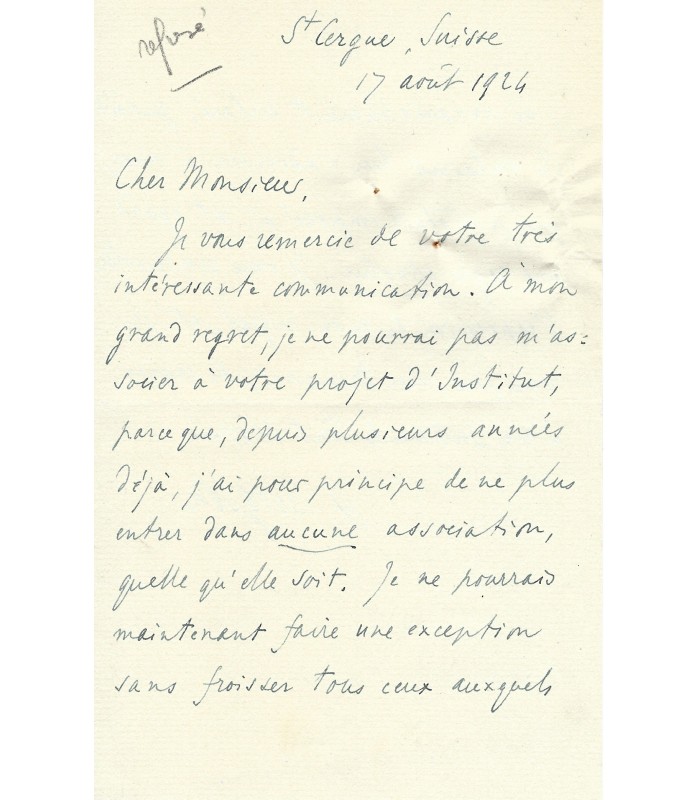 refusé
St Cergue, Suisse
17 août 1924
Cher Monsieur,
Je vous remercie de votre très
intéressante communication. À mon
grand regret, je ne pourrai pas m'as=
socier à votre projet d'Institut,
parce que, depuis plusieurs années
déjà, j'ai pour principe de ne plus
entrer dans aucune association,
quelle qu'elle soit. Je ne pourrais
maintenant faire une exception
sans froisser tous ceux auxquels